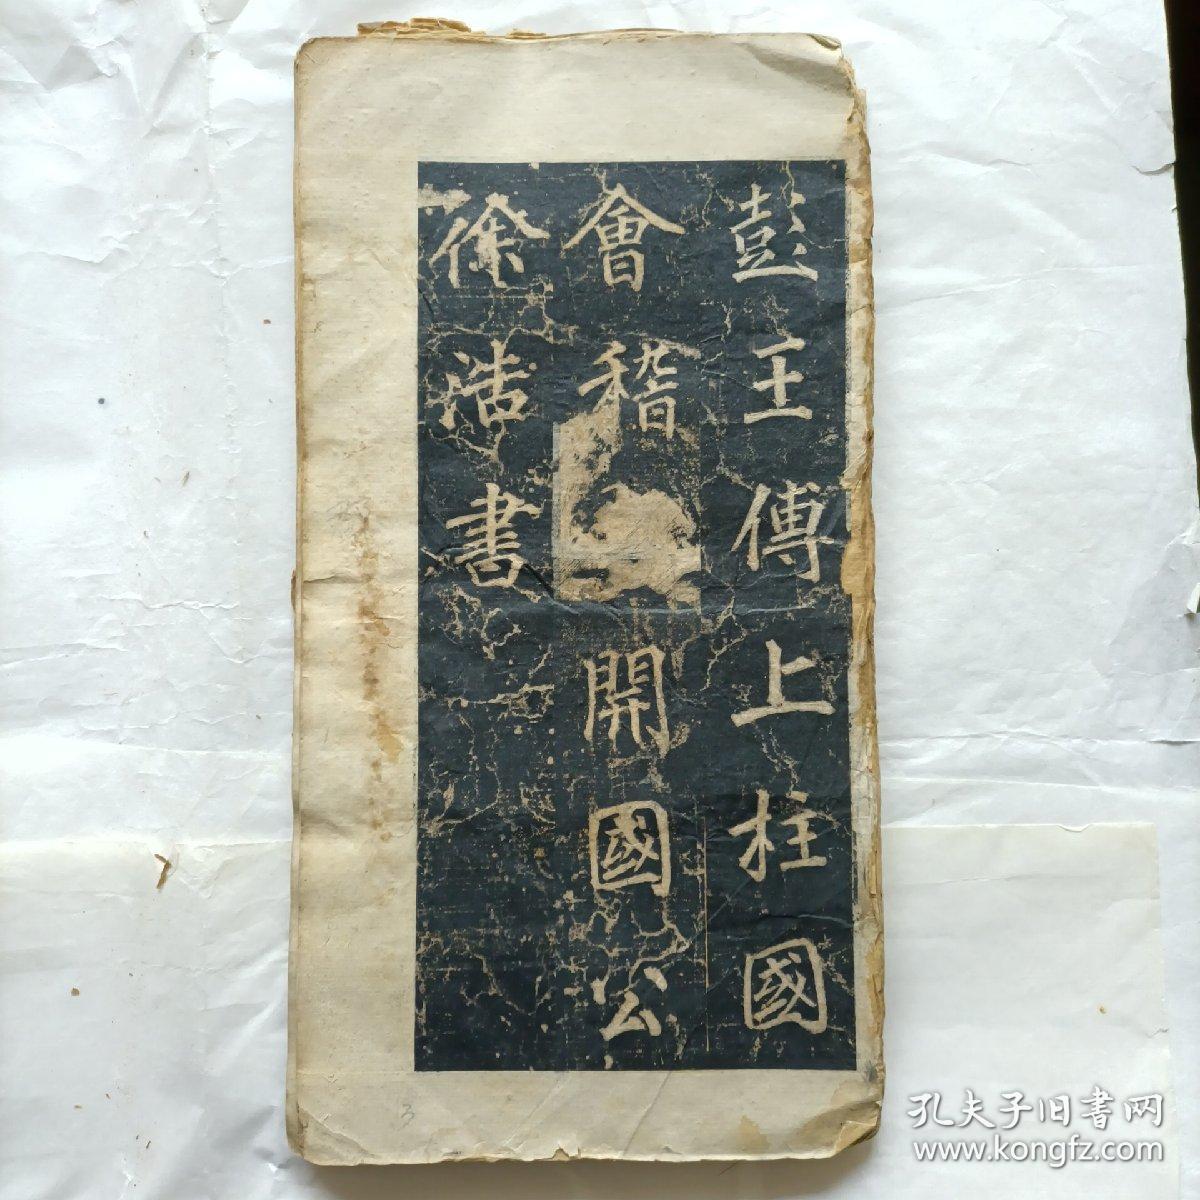 彭王傅上柱國
會稽開國公
徐浩書
3
孔夫子旧书网
www.kongfz.com